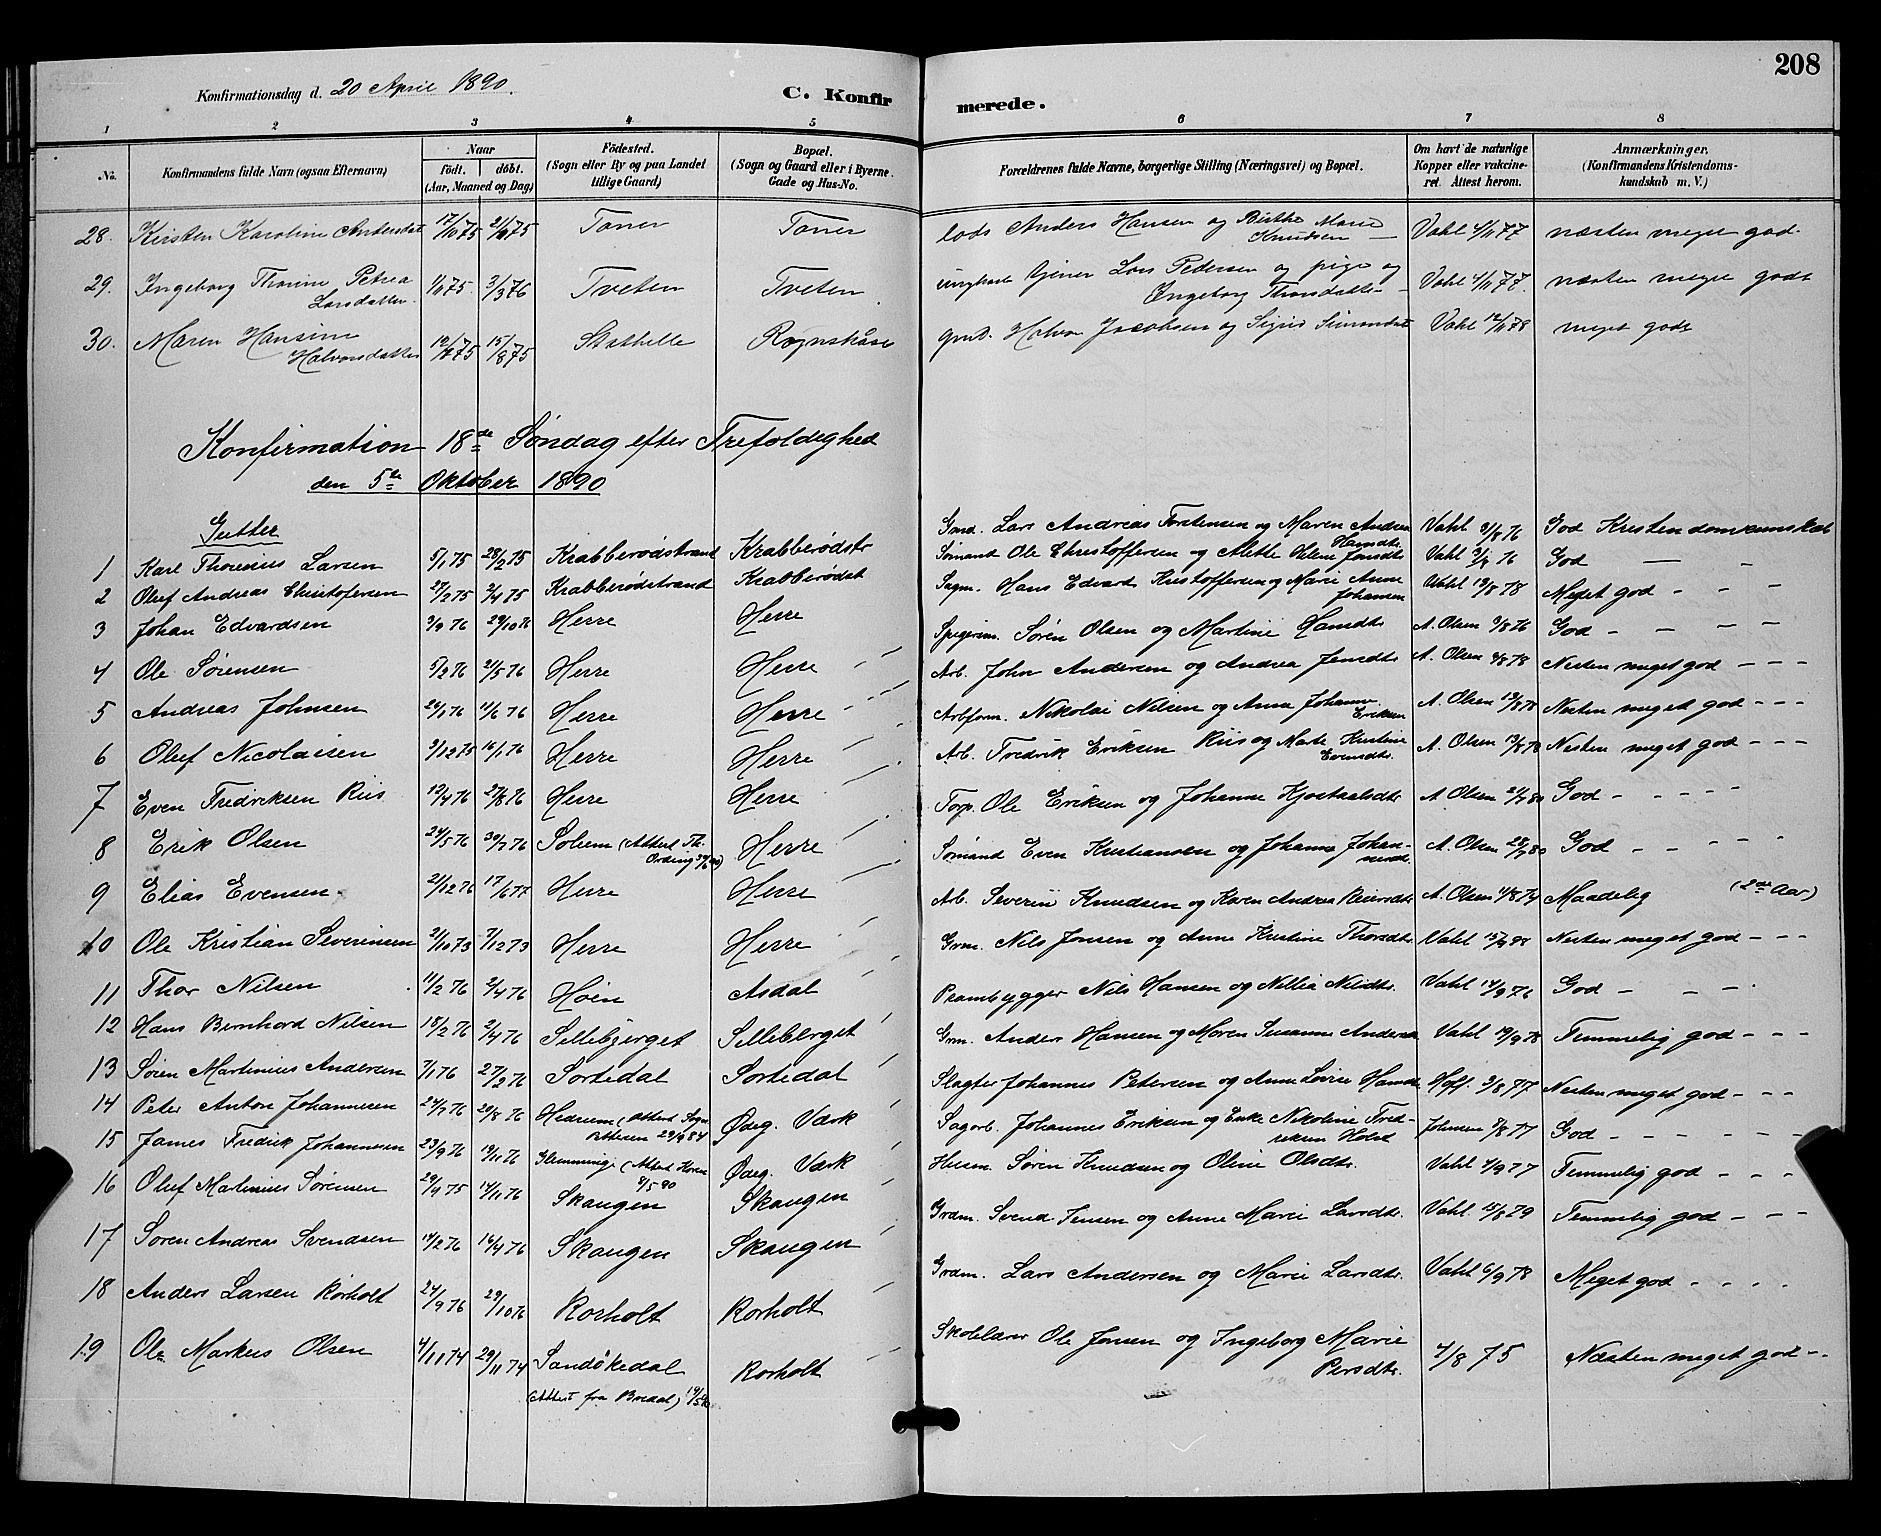 208
Konfirmationsdag d. 20 April 1890.
C. Konfirmerede.
1 2 3 4 5 6 7 8
No.
Konfirmandens fulde Navn (ogsaa Efternavn)
Naar
födt. döbt.
(Aar, Maaned og Dag)
Födested.
(Sogn eller By og paa Landet
tillige Gaard)
Bopæl.
(Sogn og Gaard eller i Byerne
Gade og Hus-No.
Forældrenes fulde Navne, borgerlige Stilling (Næringsvei) og Bopæl.
Om havt de naturlige
Kopper eller vakcine-
ret. Attest herom.
Anmærkninger.
(Konfirmandens Kristendoms-
kundskab m. V.)
28. Kirsten Karoline Andersdat 17/10 75 Toner Toner Lods Anders Hansen og Birthe Marie Knudsen Vahl 4/11 77 næsten meget god.
29. Ingeborg Thorine Petrea Larsdatter 1/11 75 3/3 76 Tveten Tveten ungkarl Lars Pedersen og pige Ingeborg Vahl 4/11 77. næsten meget godt
30. Maren Hansine Halvorsdatter 15/8 75 Stathelle Rognskåse Halvor Jacobsen og Sigrid Simonsdat Vahl 12/11 78 meget godt
Konfirmation 18de Søndag efter Trefoldighed
den 5te Oktober 1890
Gutter
1 Karl Thorenius Larsen 5/1 75 28/2 75 Krabberødstrand Krabberødstr Lars Andreas Torstensen og Maren Andrea Hansdtr Vahl 3/8 76 God Kristendomskundskab
2 Oluf Andreas Christofersen 27/2 75 2/4 75 Krabberødstrand Krabberødst Sømand Ole Christoffersen og Mette Helene Jonsdtr Vahl 76 God — -
3 Johan Edvardsen 3/9 76 29/10 76 Herre Herre Sagm. Hans Edvard Kristoffersen og Marie Anne Johansen Vahl 19/8 78 Meget god - - -
4 Ole Sørensen 5/2 76 21/5 76 Herre Herre Søren Olsen og Martine Hansdtr A. Olsen 3/8 76 God - - - -
5 Andreas Johnsen 26/1 76 11/6 76 Herre Herre Arb. John Andersen og Andrea Jensdtr A. Olsen 78 Nesten meget god - - -
6 Oluf Nicolaisen 3/12 75 16/1 76 Herre Herre Arbform. Nikolai Nilsen og Anne Johanne Eriksen A. Olsen 13/8 78 Nesten meget god - - -
7 Even Fredriksen Riis 19/4 76 27/8 76 Herre Herre Arb. Fredrik Eriksen Riis og Mate Kristine Evensdtr. A. Olsen 13/8 78 Nesten meget god - - -
8 Erik Olsen 24/5 76 30/7 76 Solum (Attest Th. Ording) Herre Torp. Ole Eriksen og Johanne Kjostaalsdtr A. Olsen God - - - - -
9 Elias Evensen 21/12 76 17/6 77 Herre Herre Sømand Even Kristiansen og Johanne Johannesdtr A. Olsen God - - - -
10 Ole Kristian Severinsen 21/10 73 7/12 73 Herre Herre Arb. Severin Knudsen og Karen Andrea A. Olsen 4/8 74 Maadelig (2de Aar)
11 Thor Nilsen 11/2 76 2/4 76 Høen Asdal Grm. Nils Jonsen og Anne Kristine Thorsdtr. Vahl Nesten meget god - - -
12 Hans Bernhard Nilsen 18/2 76 2/4 76 Sillebjerget Silleberget Prambygger Nils Hansen og Nillia Nilsdtr. Vahl 14/9 76 God - - -
13 Søren Martinius Andersen 7/1 76 27/2 76 Sortedal Sortedal Grm. Anders Hansen og Maren Susanne Vahl 19/9 78 Temmelig god - - -
14 Peter Anton Johannesen 24/7 76 20/8 76 Hedrum (Attest 29/9 84 Ødeg. Værk Slagter Johannes Petersen og Anne Lovise Hansdt Hoff. 3/8 77 Nesten meget god - - -
15 James Fredrik Johannesen 23/9 76 19/11 76 Glemminge (Attest 8/5 90 Ødeg. Værk Sagarb. Johannes Eriksen og Enke Nikoline Fredriksen Holst Johnsen 3/8 77 God - - - - - -
16 Oluf Martinius Sørensen 29/9 75 14/11 76 Skaugen Skaugen Husm. Søren Knudsen og Oline Olsdtr. Vahl 4/9 77 Temmelig god - - -
17 Søren Andreas Svendsen 14/2 76 16/4 76 Skaugen Skaugen Grdm. Svend Jensen og Anne Marie Larsdtr. Vahl. 15/8 79 Temmelig god - - -
18 Anders Larsen Rörholt 24/9 76 29/10 76 Rorholt Rorholt Grdm. Lars Andersen og Marie Larsdtr. Vahl 6/9 78 Meget god - - - -
19 Ole Markus Olsen 4/11 74 29/11 74 Sandökedal (Attest fra Bredal) Rorholt Skolelærer Ole Jensen og Ingeborg Marie Persdtr. 4/8 75 Næsten meget god - -